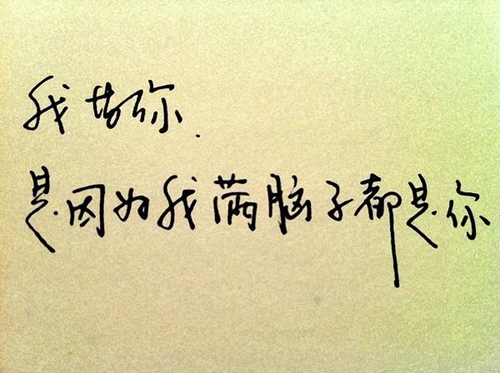 我
你.
是因为我满脑子都是你